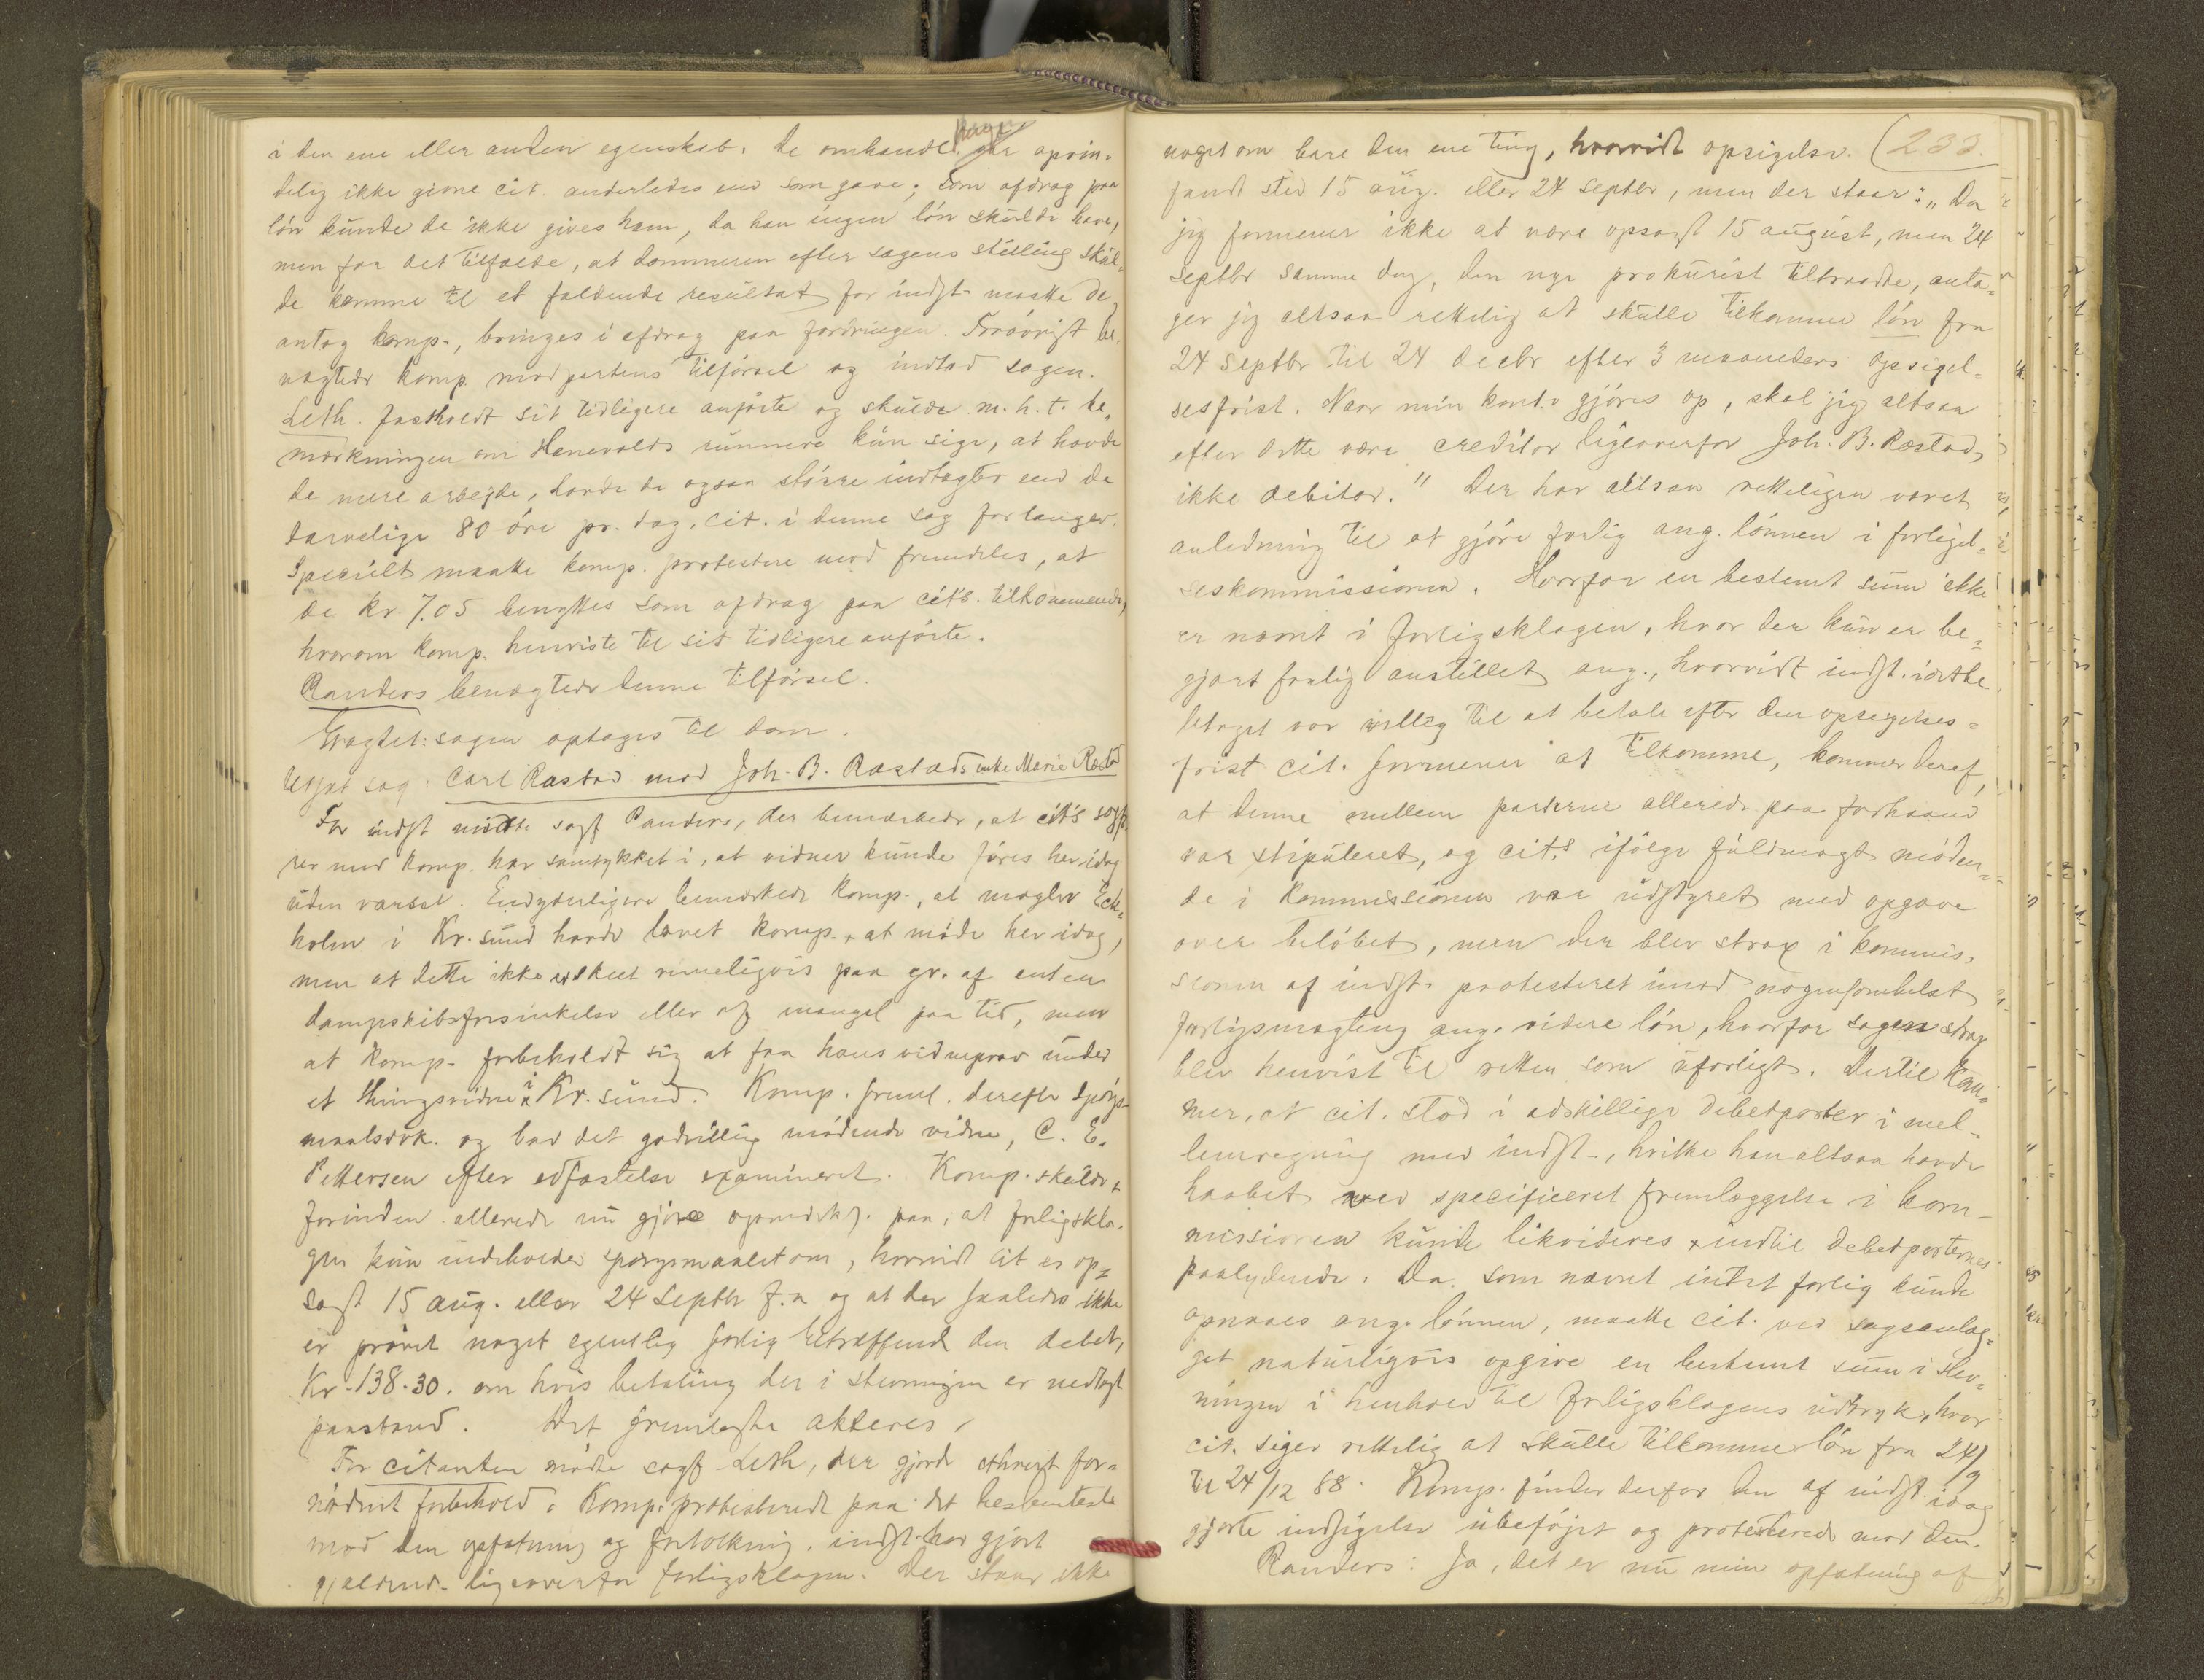 i den ene eller anden egenskab. De omhandl. penge er oprin-
delig ikke givne cit. anderledes end som gave; som afdrag paa
løn kunde de ikke gives ham, da han ingen løn skulde have,
men for det tilfælde, at dommeren efter sagens stilling skul-
de komme til et fældende resultat for indst. maatte de,
antog komp., bringes i afdrag paa fordringen. Forøvrigt be-
nægtede komp. modpartens tilførsel og indlod sagen.
Leth fastholdt sit tidligere anførte og skulde m. h. t. be-
mærkningen om Henevolds kun sige, at havde
de mere arbejde, havde de ogsaa større indtægter end de
tarvelige 80 øre pr. dag, cit. i denne sag forlanger.
Specielt maatte komp. protestere mod fremdeles, at
de kr 7.05 benyttes som afdrag paa cit's. tilkommende,
hvorom komp. henviste til sit tidligere anførte.
Randers benægtede denne tilførsel.
Eragtet: sagen optages til dom.
Udsat sag: Carl Ræstad mod Joh. B. Ræstads enke Marie Ræstad
For indst mødte sagf Randers, der bemærkede, at cit's sagfø-
rer med komp. har samtykket i, at vidner kunde føres her idag
uden varsel. Endyderligere bemærkede komp., at mægler Eck-
holm i Kr. sund havde lovet komp. at møde her idag,
men at dette ikke er skeet rimeligvis paa gr. af enten
dampskibsforsinkelse eller af mangel paa tid, men
at komp. forbeholdt sig at faa hans vidneprov under
et thingsvidne i Kr. sund. Komp. freml. derefter spørgs-
maalsdok. og bad det godvillig mødende vidne, C. E.
Pettersen efter edfæstelse examineret. Komp. skulde
forinden allerede nu gjøre opmerks. paa, at forligskla-
gen kun indeholder spørgsmaalet om, hvorvidt cit er op-
sagt 15 aug. eller 24 Septbr f. a og at der saaledes ikke
er prøvet noget egentlig forlig betræffende den debet,
Kr. 138.30. om hvis betaling der i stevningen er nedlagt
paastand. Det fremlagte akteres.
For citanten mødte sagf Leth, der gjorde ethvert for-
nødent forbehold. Komp. protesterede paa det bestemteste
mod den opfatning og fortolkning, indst. har gjort
gjeldende ligeoverfor forligsklagen. Der staar ikke
(233.
noget om bare den ene ting, hvorvidt opsigelse
fandt sted 15 aug. eller 24 septbr, men der staar: "Da
jeg formener ikke at være opsagt 15 august, men 24
septbr samme dag, den nye prokurist tiltraadte, anta-
ger jeg altsaa rettelig at skulle tilkomme løn fra
24 septbr til 24 decbr efter 3 maaneders opsigel-
sesfrist. Naar min konto gjøres op, skal jeg altsaa
efter dette være creditor ligeoverfor Joh. B. Ræstad,
ikke debitor." Der har altsaa retteligen været
anledning til at gjøre forlig ang. lønnen i forligel-
seskommissionen. Hvorfor en bestemt sum ikke
er nævnt i forligsklagen, hvor der kun er be-
gjært forlig anstillet ang., hvorvidt indst. idethe-
letaget var villig til at betale efter den opsigelses-
frist cit. formener at tilkomme, kommer deraf,
at denne mellem parterne allerede paa forhaand
var stipuleret, og cit.s ifølge fuldmagt møden-
de i kommissionen var udstyret med opgave
over beløbet, men der blev strax i kommis-
sionen af indst. protesteret imod nogensomhelst
forligsmægling ang. videre løn, hvorfor sagen strax
blev henvist til retten som uforligt. Dertil kom-
mer, at cit. stod i adskillige debetposter i mel-
lemregning med indst., hvilke han altsaa havde
haabet ved specificeret fremlæggelse i kom-
missionen kunde likvideres indtil debetposternes
paalydende. Da som nævnt intet forlig kunde
opnaaes ang. lønnen, maatte cit. ved sagsanlæg-
get naturligvis opgive en bestemt sum i stev-
ningen i henhold til forligsklagens udtryk, hvor
cit. siger rettelig at skulle tilkomme løn fra 24/9
til 24/12 88. Komp. finder derfor den af indst. idag
gjorte indsigelse ubeføjet og protesterede mod den.
Randers: Ja, det er nu min opfatning af